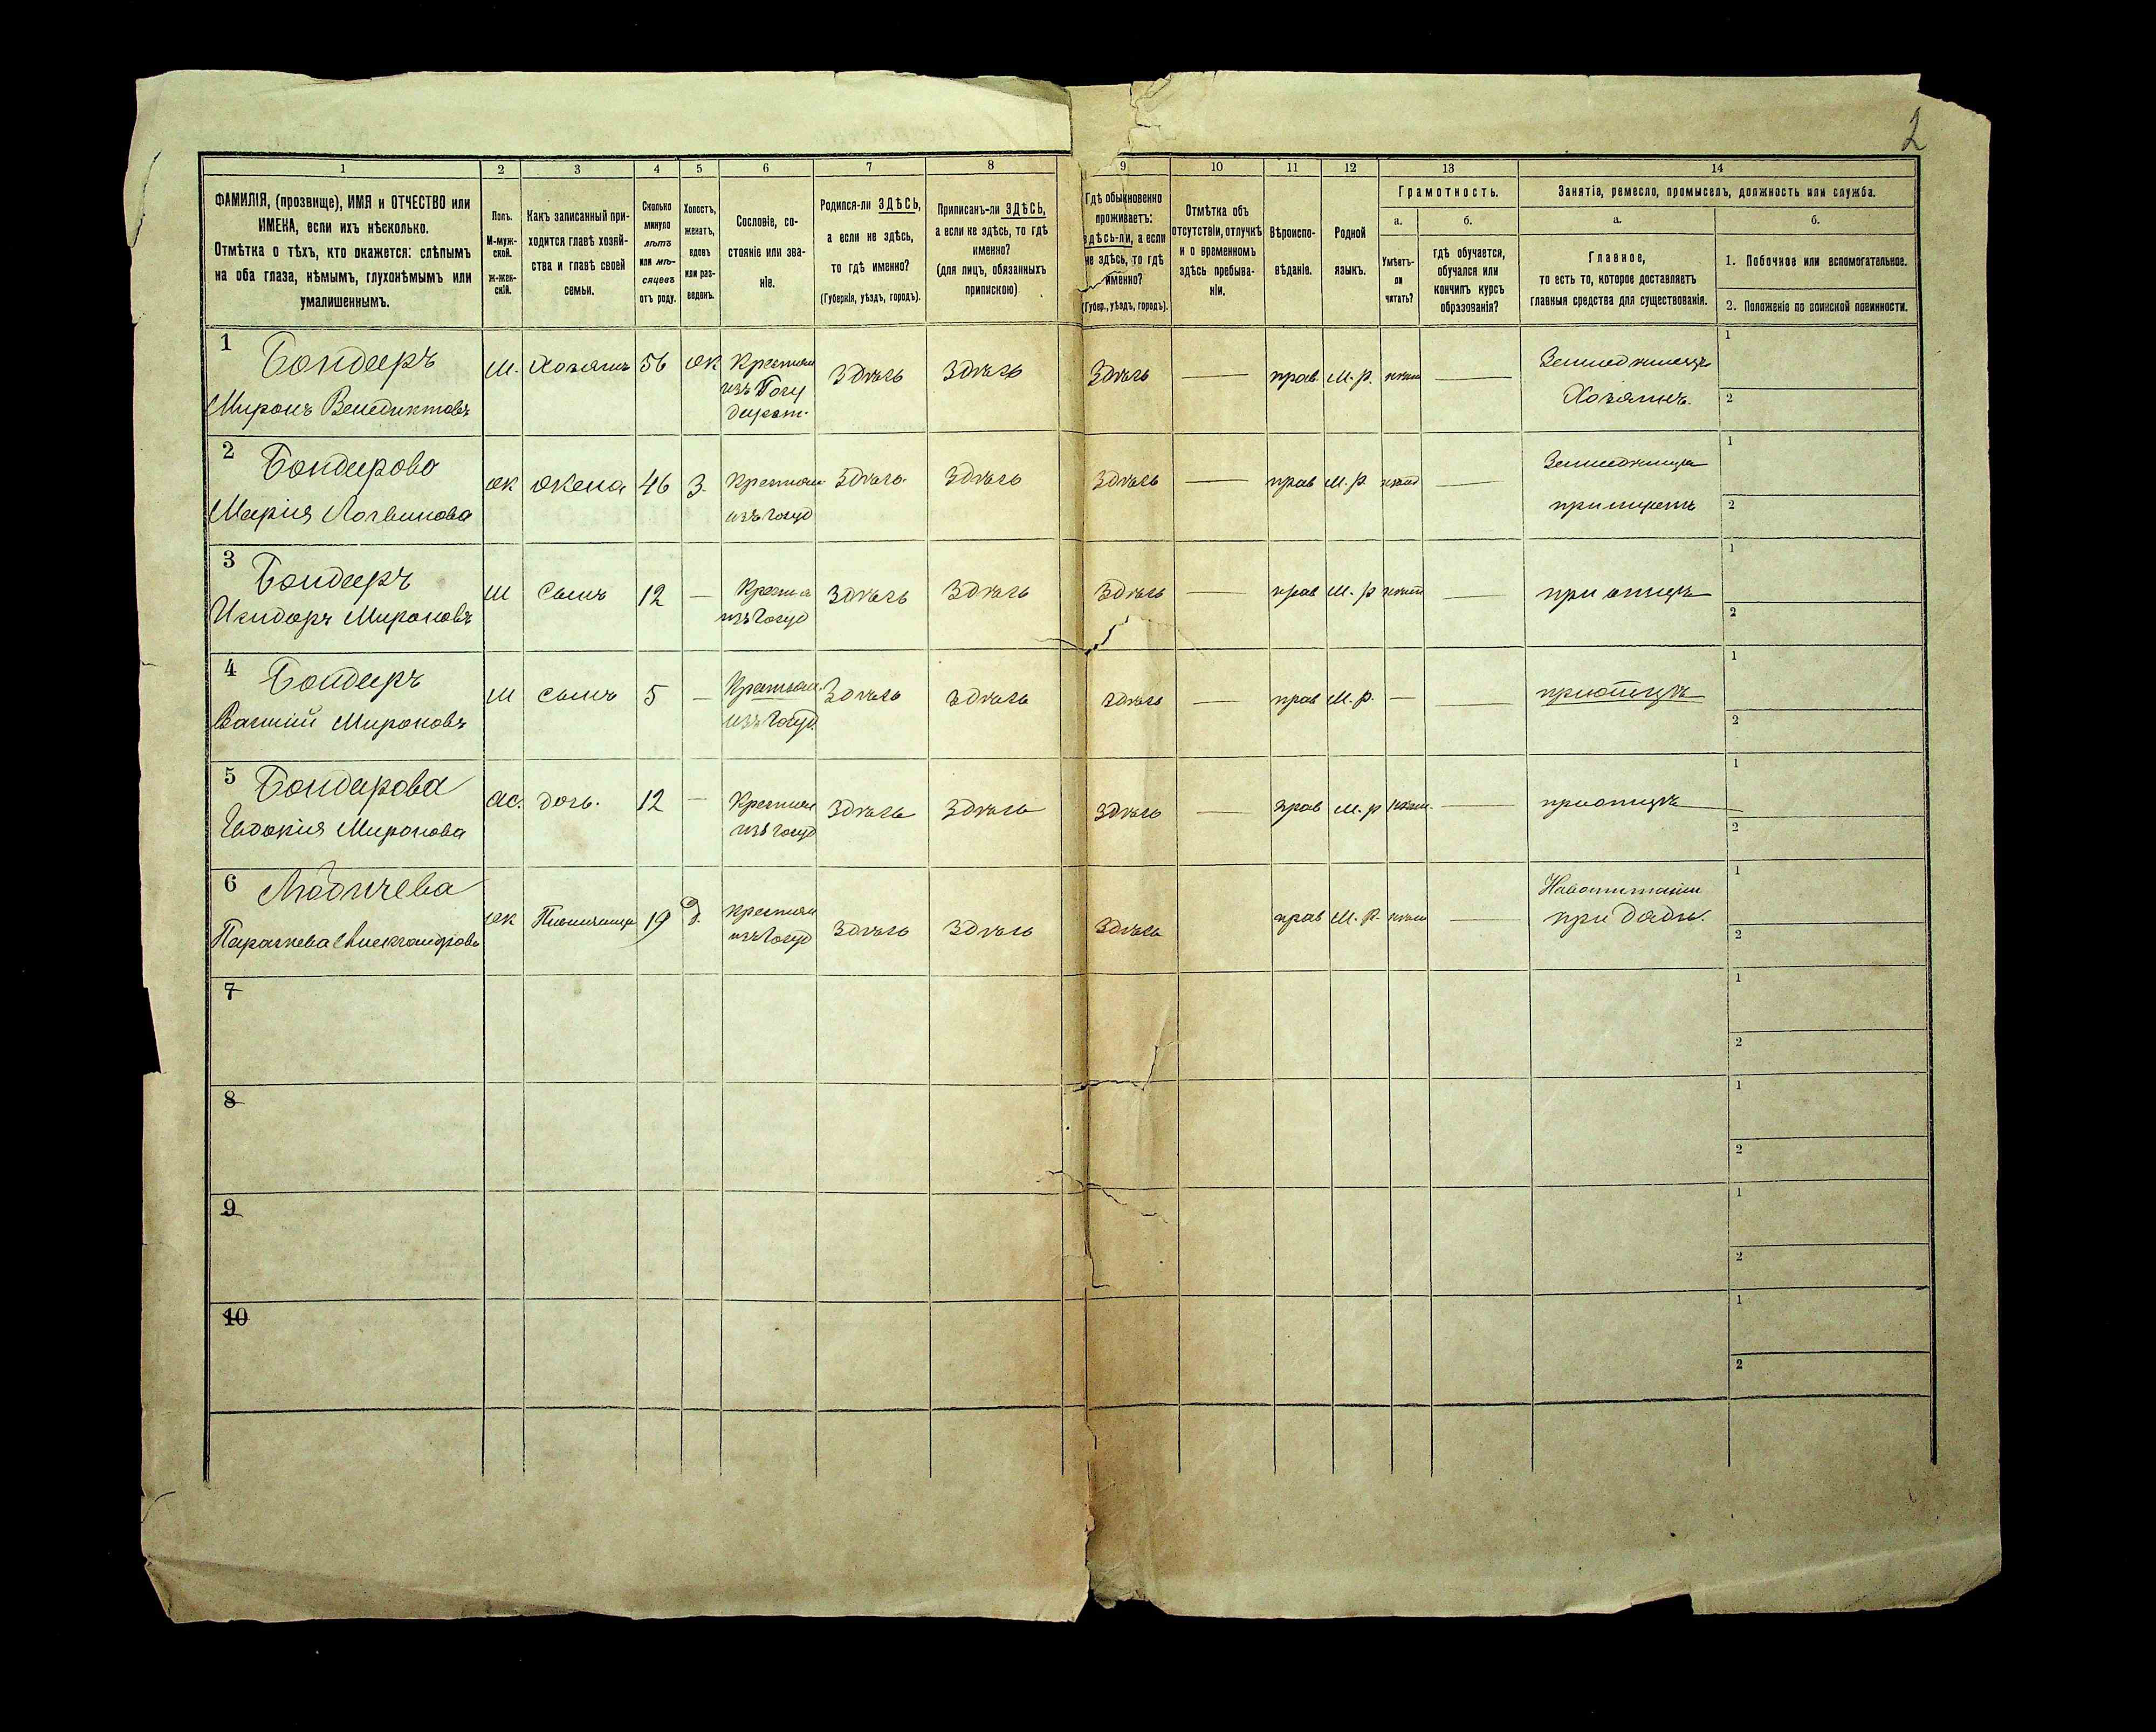 2
1 2 3 4 5 6 7 8 9 10 11 12 13 14
ФАМИЛІЯ, (прозвище), ИМЯ и ОТЧЕСТВО или
ИМЕНА, если ихъ нѣсколько.
Отмѣтка о тѣхъ, кто окажется: слѣпымъ
на оба глаза, нѣмымъ, глухонѣмымъ или
умалишеннымъ.
Полъ.
М-муж-
ской.
ж-жен-
скій.
Какъ записанный при-
ходится главѣ хозяй-
ства и главѣ своей
семьи.
Сколько
минуло
лѣтъ
или мѣ-
сяцевъ
отъ роду.
Холостъ,
женатъ,
вдовъ
или раз-
веденъ.
Сословіе, со-
стояніе или зва-
ніе.
Родился-ли ЗДѢСЬ,
а если не здѣсь,
то гдѣ именно?
(Губернія, уѣздъ, городъ).
Приписанъ-ли ЗДѢСЬ,
а если не здѣсь, то гдѣ
именно?
(для лицъ, обязанныхъ
припискою)
Гдѣ обыкновенно
проживаетъ:
здѣсь-ли, а если
не здѣсь, то гдѣ
именно?
(Губер., уѣздъ, городъ).
Отмѣтка объ
отсутствіи, отлучкѣ
и о временномъ
здѣсь пребыва-
ніи.
Вѣроиспо-
вѣданіе.
Родной
языкъ.
Грамотность.
а.
Умѣетъ-
ли
читать?
б.
гдѣ обучается,
обучался или
кончилъ курсъ
образованія?
Занятіе, ремесло, промыселъ, должность или служба.
а.
Главное,
то есть то, которое доставляетъ
главныя средства для существованія.
б.
1. Побочное или вспомогательное.
2. Положеніе по воинской повинности.
1 Бондарь м. Хозяинъ 56 ж Крестьян здѣсь здѣсь здѣсь — прав. м. р. нѣт — Земледѣлецъ 1
Миронъ Венедиктовъ изъ Госу Хозяинъ. 2
дарст.
2 Бондарова ж жена 46 З. Крестьян здѣсь здѣсь здѣсь — прав м. р. нѣт — Земледѣлица 1
Марія Логвинова изъ госуд при мужѣ 2
3 Бондарь м сынъ 12 — Крест. здѣсь здѣсь здѣсь — прав м. р нѣт — при отцѣ 1
Исидоръ Мироновъ изъ госуд 2
4 Бондарь м сынъ 5 — Крестьян здѣсь здѣсь здѣсь — прав м. р. — — при отцѣ 1
Василій Мироновъ изъ госуд. 2
5 Бондарова ж. дочь. 12 — Крестьян здѣсь здѣсь здѣсь — прав м. р нѣт. — при отцѣ 1
Евдокія Миронова изъ госуд 2
6 ж Племянница 19 д. крестьян здѣсь здѣсь здѣсь прав м. р. нѣт — 1
Параскева Александрова изъ госуд при дядѣ. 2
7 1
2
8 1
2
9 1
2
10 1
2